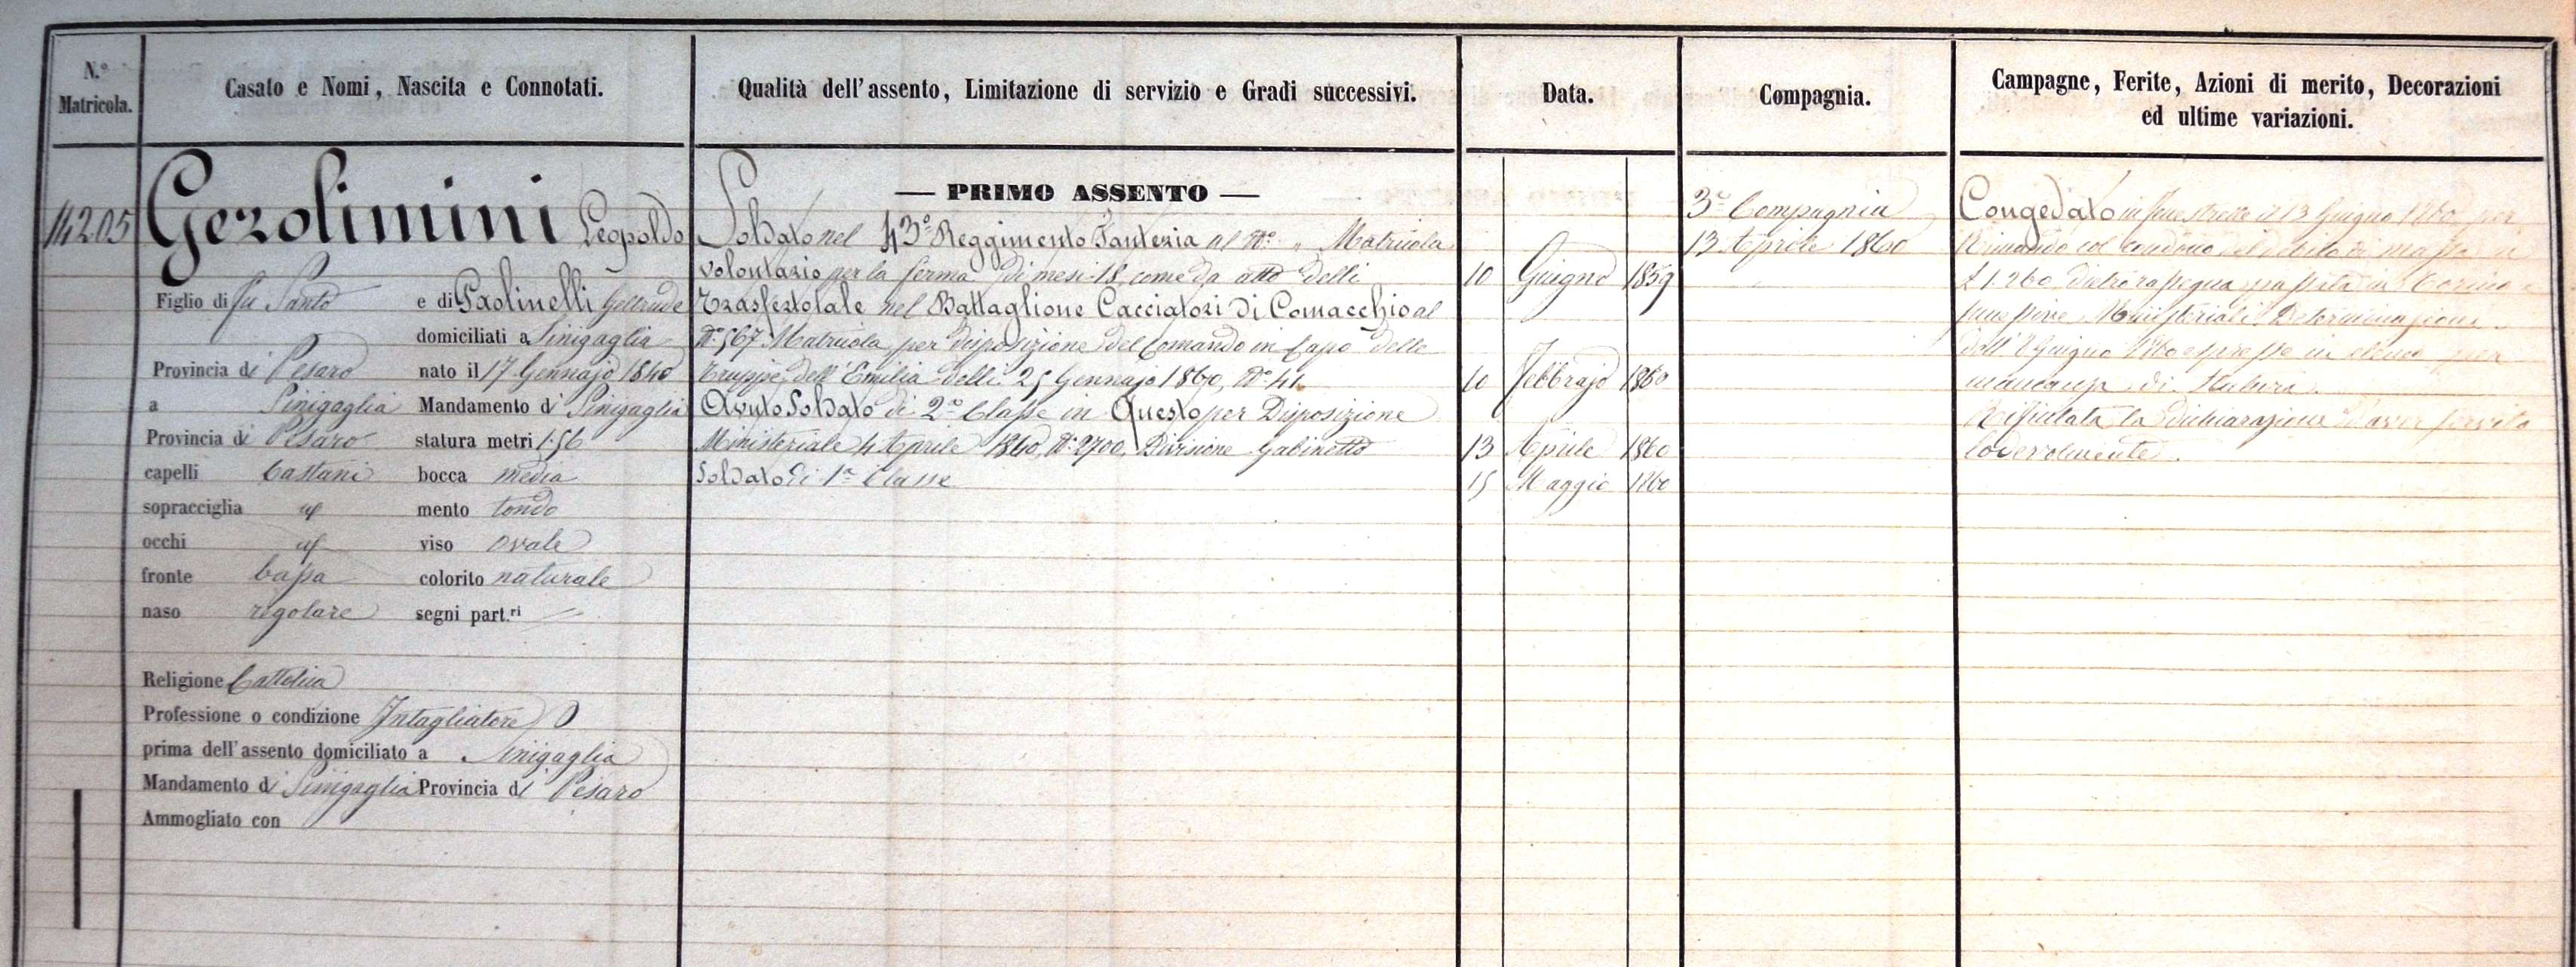 N.° Matricola.
Casato e Nomi, Nascita e Connotati.
Qualità dell'assento, Limitazione di servizio e Gradi successivi.
Data.
Compagnia.
Campagne, Ferite, Azioni di merito, Decorazioni
ed ultime variazioni.
14205
Gerolimini Leopoldo
Figlio di fu Santo e di Paolinelli Geltrude
domiciliati a Sinigaglia
Provincia di Pesaro nato il 17 Gennajo 1840
a Sinigaglia Mandamento di Sinigaglia
Provincia di Pesaro statura metri 1.56
capelli Castani bocca media
sopracciglia id mento tondo
occhi id viso ovale
fronte bassa colorito naturale
naso regolare segni part.ri
Religione Cattolica
Professione o condizione Intagliatore
prima dell'assento domiciliato a Sinigaglia
Mandamento di Sinigaglia Provincia di Pesaro
Ammogliato con
— PRIMO ASSENTO —
Soldato nel 43° Reggimento Fanteria al N° " Matricola
volontario per la ferma di mesi 18 come da atto delli 10 Giugno 1859
Trasfertotale nel Battaglione Cacciatori di Comacchio al
N° 567 Matricola per disposizione del Comando in Capo delle
Truppe dell'Emilia delli 25 Gennajo 1860, N° 44 10 Febbrajo 1860
Avuto Soldato di 2a Classe in Questo per Disposizione
Ministeriale 4 Aprile 1860, N° 2700, Divisione Gabinetto 13 Aprile 1860
Soldato di 1a Classe 15 Maggio 1860
3a Compagnia
13 Aprile 1860
Congedato in Fenestrelle il 13 Giugno 1860 per
Rimando col condono del debito di massa in
£ 1.260, dietro rassegna passata in Torino
Ministeriali Determinazione
dell' 8 Giugno 1860 espressa in elenco per
mancanza di statura.
Rifiutata la dichiarazione d'aver servito
lodevolmente.